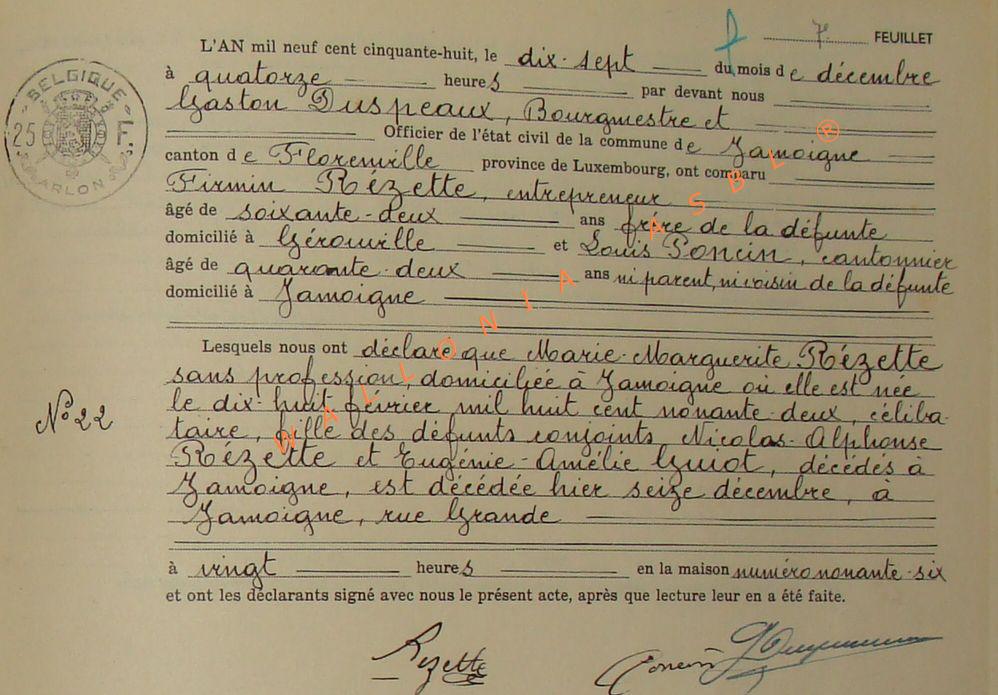 7 FEUILLET
L'AN mil neuf cent cinquante-huit, le dix-sept du mois de décembre
à quatorze heures par devant nous
Gaston Duspeaux, Bourgmestre et
Officier de l'état civil de la commune de Jamoigne
canton de Florenville province de Luxembourg, ont comparu
Firmin Rézette, entrepreneur
âgé de soixante-deux ans frère de la défunte
domicilié à Gérouville et Louis Poncin, cantonnier
âgé de quarante-deux ans ni parent, ni voisin de la défunte
domicilié à Jamoigne
Lesquels nous ont déclaré que Marie-Marguerite Rézette
sans profession, domiciliée à Jamoigne où elle est née
le dix-huit février mil huit cent nonante-deux, céliba-
taire, fille des défunts conjoints Nicolas-Alphonse
Rézette et Eugénie-Amélie Guiot, décédés à
Jamoigne, est décédée hier seize décembre, à
Jamoigne, rue Grande
à vingt heures en la maison numéro nonante-six
et ont les déclarants signé avec nous le présent acte, après que lecture leur en a été faite.
Rezette Poncin
N° 22
BELGIQUE
25 F.
ARLON
WALLONIA ASBL ®